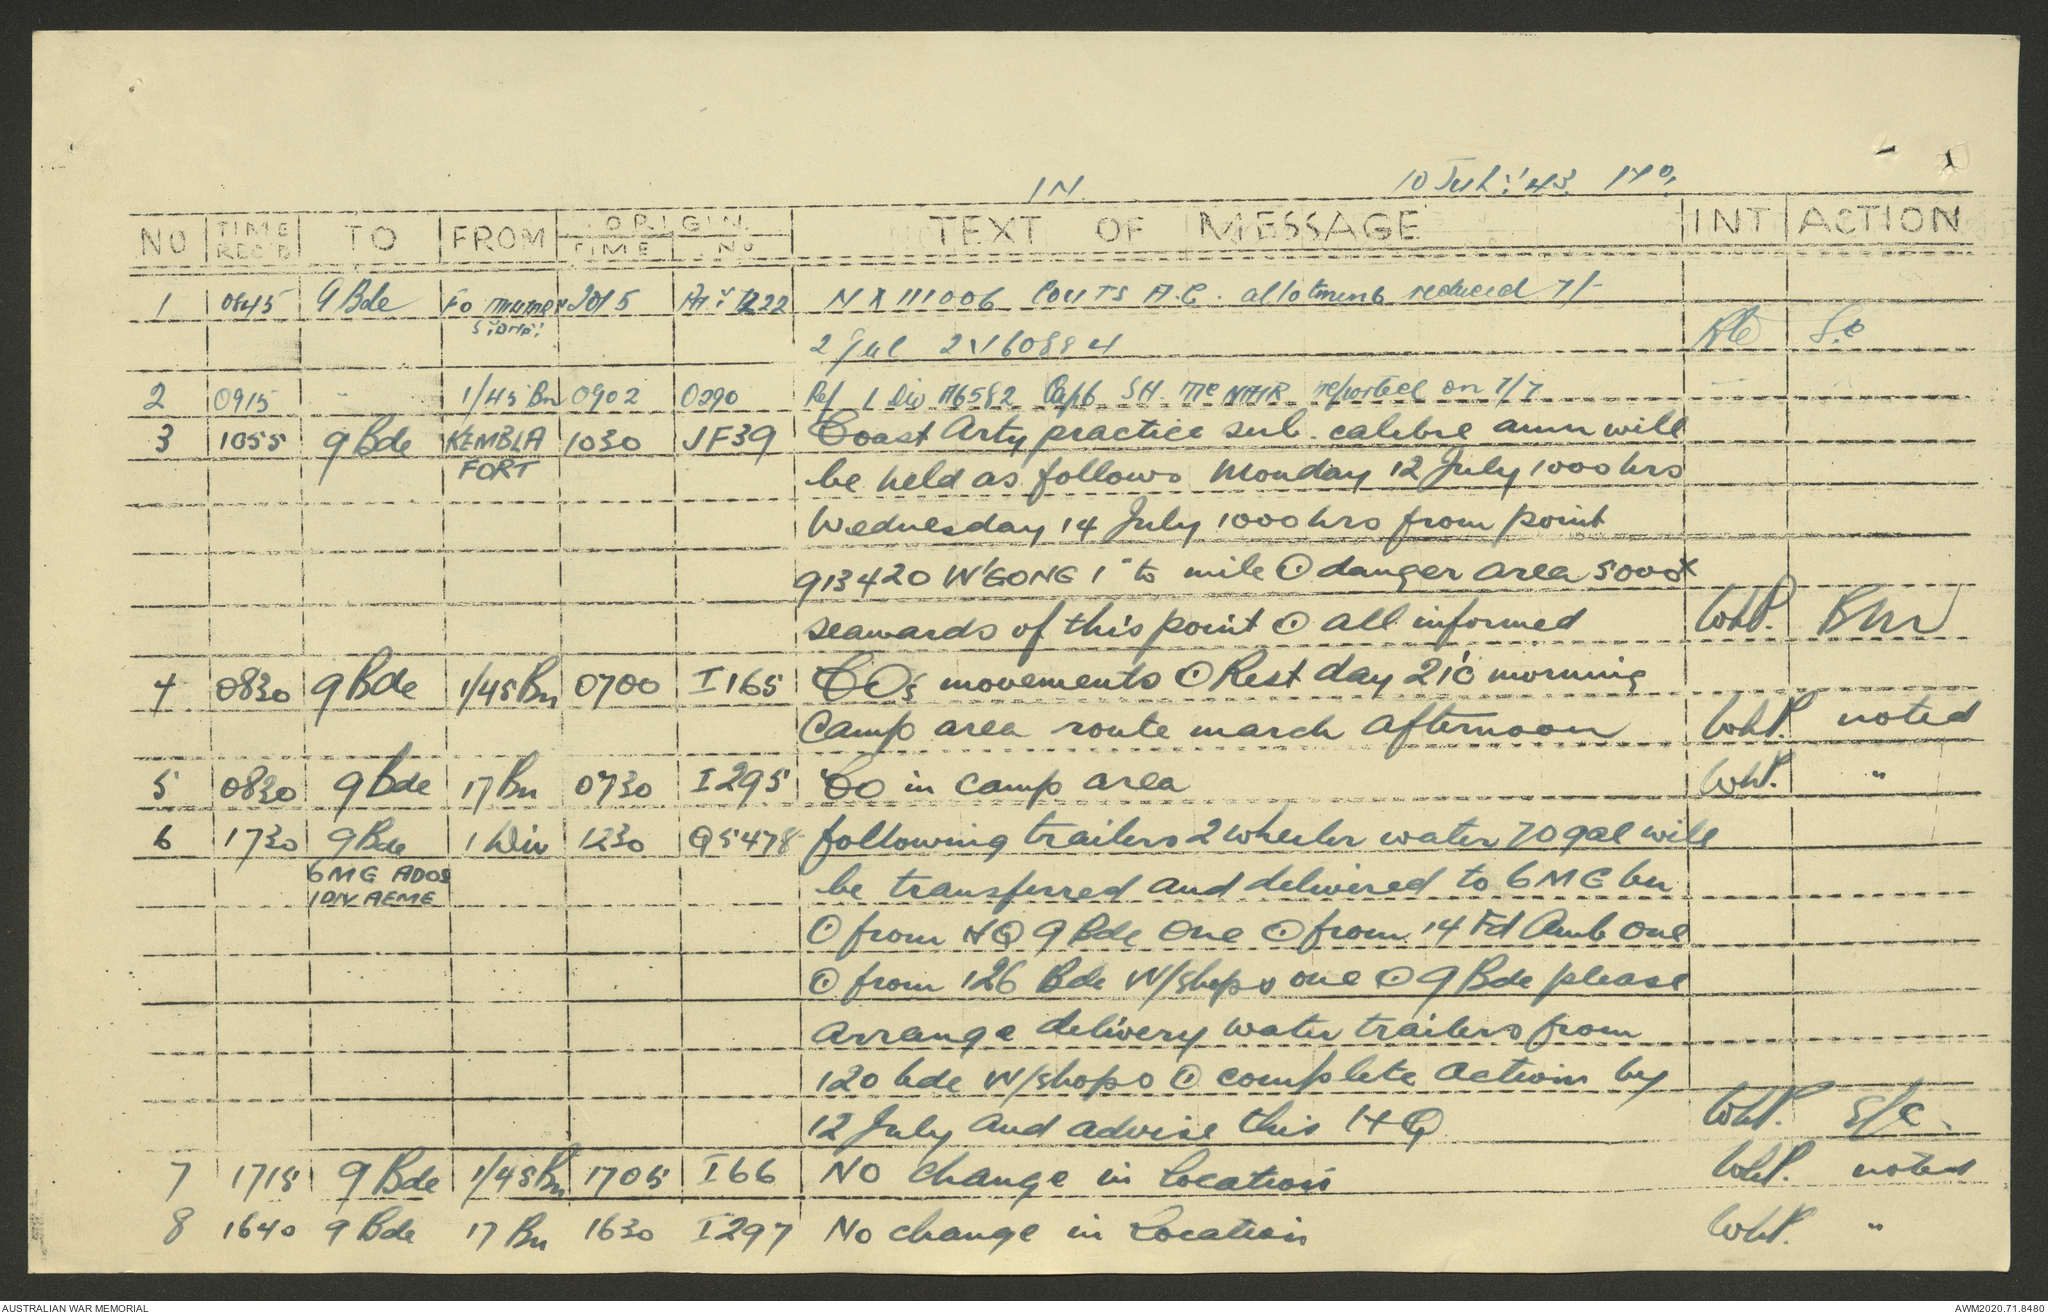 IN 10 July '43
NO TIME REC'D TO FROM ORIGIN TIME NO TEXT OF MESSAGE INT ACTION
1 0845 9 Bde 2015 NX111006 COUTTS A.C. allotment reduced 7/-
2 Jul 2V160884 S.C
2 0915 - 1/45 Bn 0902 0290 Ref 1 Div A6582 Capt S.H. McNAIR reported on 7/7
3 1055 9 Bde KEMBLA 1030 JF39 Coast Arty practice sub. calibre amm will
FORT be held as follows Monday 12 July 1000 hrs
Wednesday 14 July 1000 hrs from point
913420 W'GONG 1" to mile ⊙ danger area 5000x
seawards of this point ⊙ all informed WhP. BM
4 0830 9 Bde 1/45 Bn 0700 I165 CO's movements ⊙ Rest day 2i/c morning
camp area route march afternoon WhP. noted
5 0830 9 Bde 17 Bn 0730 I295 CO in camp area WhP. "
6 1730 9 Bde 1 Div 1230 Q5478 following trailers 2 wheeler water 70 gal will
6 MG ADOS be transferred and delivered to 6 MG bn
1 DIV AEME
⊙ from HQ 9 Bde one ⊙ from 14 Fd Amb one
⊙ from 126 Bde W/shops one ⊙ 9 Bde please
arrange delivery water trailers from
120 bde W/shops ⊙ complete action by
12 July and advise this HQ WhP. S/C.
7 1715 9 Bde 1/45 Bn 1705 I66 No change in location WhP. noted
8 1640 9 Bde 17 Bn 1630 I297 No change in location WhP. "
AUSTRALIAN WAR MEMORIAL AWM2020.71.8480